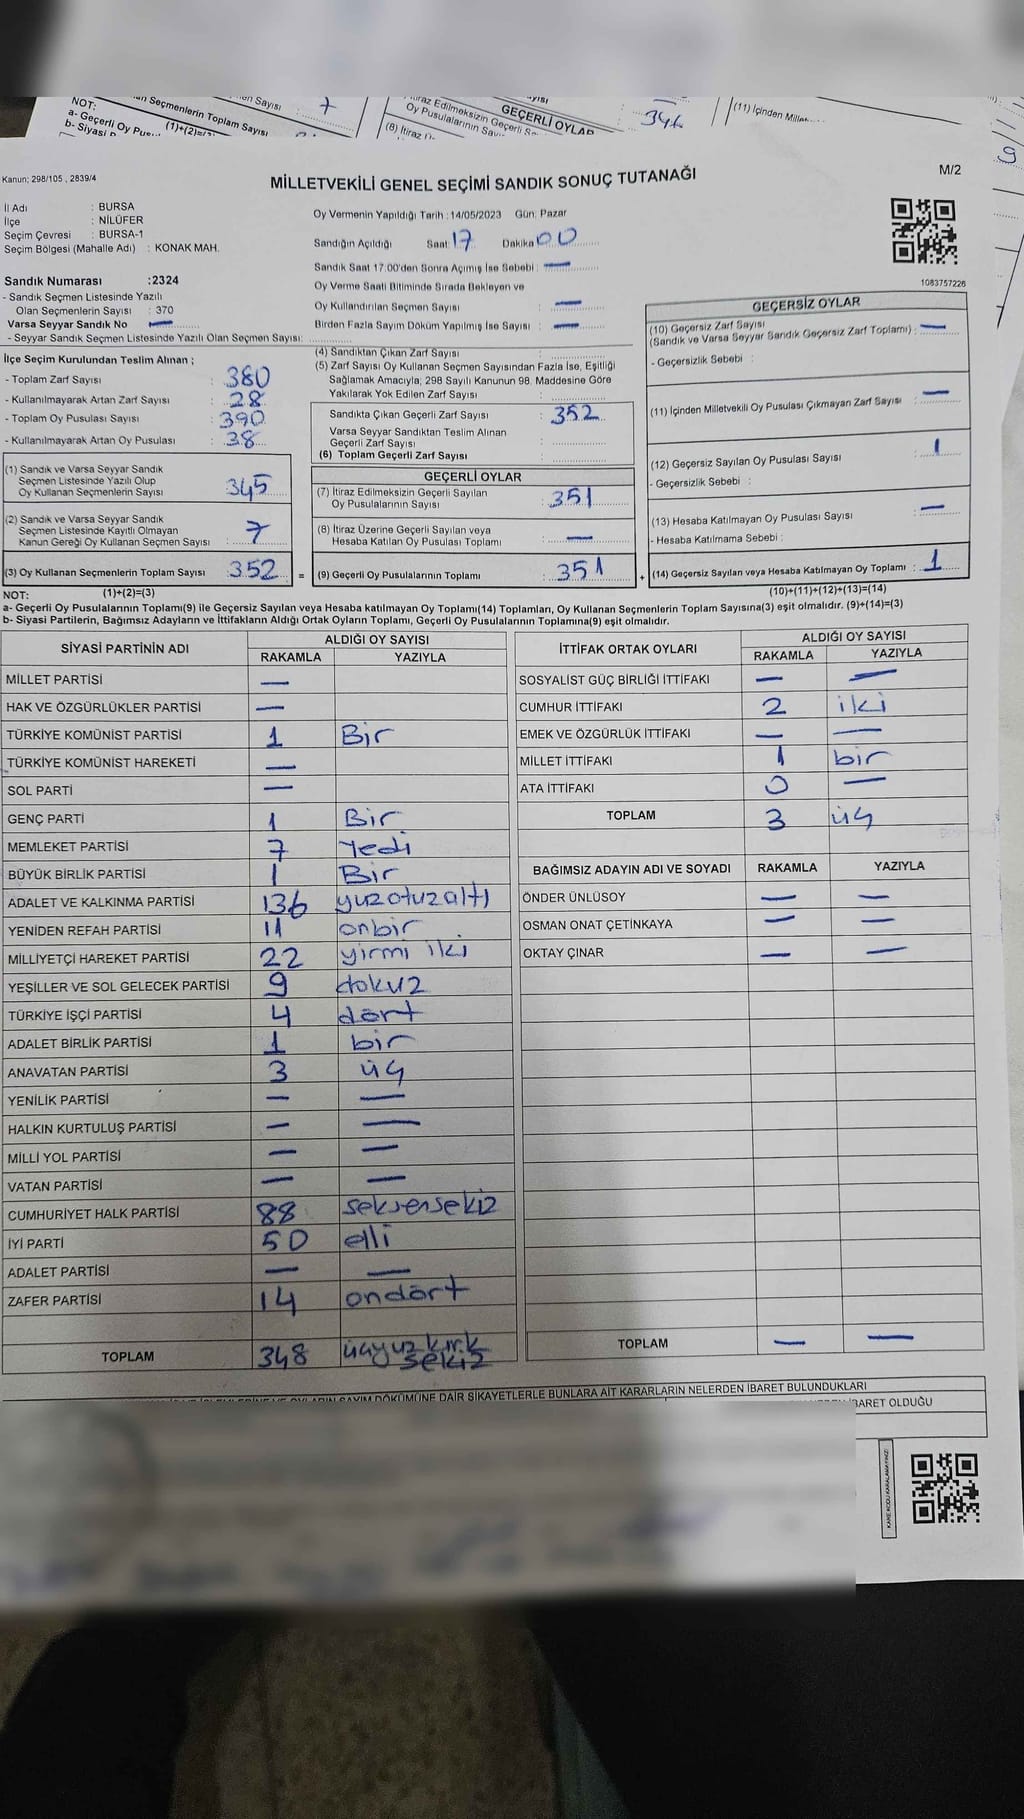 NOT:
a- Geçerli Oy Pusu
b- Siyasi P
Seçmenlerin Toplam Sayısı
Sayısı
(1)+(2)=(3)
7
İtiraz Edilmeksizin Geçerli S
Oy Pusulalarının Say
GEÇERLİ OYLAR
(8) İtiraz Ü
346
(11) İçinden Millet
9
Kanun; 298/105 , 2839/4
MİLLETVEKİLİ GENEL SEÇİMİ SANDIK SONUÇ TUTANAĞI
M/2
İl Adı : BURSA
İlçe : NİLÜFER
Seçim Çevresi : BURSA-1
Seçim Bölgesi (Mahalle Adı) : KONAK MAH.
Oy Vermenin Yapıldığı Tarih :14/05/2023 Gün: Pazar
Sandığın Açıldığı Saat: 17 Dakika: 00
Sandık Saat 17.00'den Sonra Açımış İse Sebebi : —
Oy Verme Saati Bitiminde Sırada Bekleyen ve
Oy Kullandırılan Seçmen Sayısı : —
Birden Fazla Sayım Döküm Yapılmış İse Sayısı : —
1083757226
Sandık Numarası :2324
- Sandık Seçmen Listesinde Yazılı
Olan Seçmenlerin Sayısı : 370
Varsa Seyyar Sandık No —
- Seyyar Sandık Seçmen Listesinde Yazılı Olan Seçmen Sayısı:
İlçe Seçim Kurulundan Teslim Alınan ;
- Toplam Zarf Sayısı : 380
- Kullanılmayarak Artan Zarf Sayısı : 28
- Toplam Oy Pusulası Sayısı : 390
- Kullanılmayarak Artan Oy Pusulası : 38
(1) Sandık ve Varsa Seyyar Sandık
Seçmen Listesinde Yazılı Olup
Oy Kullanan Seçmenlerin Sayısı : 345
(2) Sandık ve Varsa Seyyar Sandık
Seçmen Listesinde Kayıtlı Olmayan
Kanun Gereği Oy Kullanan Seçmen Sayısı : 7
(3) Oy Kullanan Seçmenlerin Toplam Sayısı : 352 =
(4) Sandıktan Çıkan Zarf Sayısı :
(5) Zarf Sayısı Oy Kullanan Seçmen Sayısından Fazla İse, Eşitliği
Sağlamak Amacıyla; 298 Sayılı Kanunun 98. Maddesine Göre
Yakılarak Yok Edilen Zarf Sayısı :
Sandıkta Çıkan Geçerli Zarf Sayısı : 352
Varsa Seyyar Sandıktan Teslim Alınan
Geçerli Zarf Sayısı :
(6) Toplam Geçerli Zarf Sayısı :
GEÇERLİ OYLAR
(7) İtiraz Edilmeksizin Geçerli Sayılan
Oy Pusulalarının Sayısı : 351
(8) İtiraz Üzerine Geçerli Sayılan veya
Hesaba Katılan Oy Pusulası Toplamı : —
(9) Geçerli Oy Pusulalarının Toplamı : 351 +
GEÇERSİZ OYLAR
(10) Geçersiz Zarf Sayısı
(Sandık ve Varsa Seyyar Sandık Geçersiz Zarf Toplamı) : —
- Geçersizlik Sebebi :
(11) İçinden Milletvekili Oy Pusulası Çıkmayan Zarf Sayısı : —
(12) Geçersiz Sayılan Oy Pusulası Sayısı : 1
- Geçersizlik Sebebi :
(13) Hesaba Katılmayan Oy Pusulası Sayısı : —
- Hesaba Katılmama Sebebi :
(14) Geçersiz Sayılan veya Hesaba Katılmayan Oy Toplamı : 1
NOT: (1)+(2)=(3) (10)+(11)+(12)+(13)=(14)
a- Geçerli Oy Pusulalarının Toplamı(9) ile Geçersiz Sayılan veya Hesaba katılmayan Oy Toplamı(14) Toplamları, Oy Kullanan Seçmenlerin Toplam Sayısına(3) eşit olmalıdır. (9)+(14)=(3)
b- Siyasi Partilerin, Bağımsız Adayların ve İttifakların Aldığı Ortak Oyların Toplamı, Geçerli Oy Pusulalarının Toplamına(9) eşit olmalıdır.
SİYASİ PARTİNİN ADI ALDIĞI OY SAYISI
RAKAMLA YAZIYLA
MİLLET PARTİSİ —
HAK VE ÖZGÜRLÜKLER PARTİSİ —
TÜRKİYE KOMÜNİST PARTİSİ 1 Bir
TÜRKİYE KOMÜNİST HAREKETİ —
SOL PARTİ —
GENÇ PARTİ 1 Bir
MEMLEKET PARTİSİ 7 Yedi
BÜYÜK BİRLİK PARTİSİ 1 Bir
ADALET VE KALKINMA PARTİSİ 136 yuzotuzaltı
YENİDEN REFAH PARTİSİ 11 onbir
MİLLİYETÇİ HAREKET PARTİSİ 22 yirmi iki
YEŞİLLER VE SOL GELECEK PARTİSİ 9 dokuz
TÜRKİYE İŞÇİ PARTİSİ 4 dört
ADALET BİRLİK PARTİSİ 1 bir
ANAVATAN PARTİSİ 3 üç
YENİLİK PARTİSİ — —
HALKIN KURTULUŞ PARTİSİ — —
MİLLİ YOL PARTİSİ — —
VATAN PARTİSİ — —
CUMHURİYET HALK PARTİSİ 88 seksensekiz
İYİ PARTİ 50 elli
ADALET PARTİSİ — —
ZAFER PARTİSİ 14 ondört
TOPLAM 348 üçyuz kırk
sekiz
İTTİFAK ORTAK OYLARI ALDIĞI OY SAYISI
RAKAMLA YAZIYLA
SOSYALİST GÜÇ BİRLİĞİ İTTİFAKI — —
CUMHUR İTTİFAKI 2 iki
EMEK VE ÖZGÜRLÜK İTTİFAKI — —
MİLLET İTTİFAKI 1 bir
ATA İTTİFAKI 0 —
TOPLAM 3 üç
BAĞIMSIZ ADAYIN ADI VE SOYADI RAKAMLA YAZIYLA
ÖNDER ÜNLÜSOY — —
OSMAN ONAT ÇETİNKAYA — —
OKTAY ÇINAR — —
TOPLAM — —
OYLARIN SAYIM DÖKÜMÜNE DAİR ŞİKAYETLERLE BUNLARA AİT KARARLARIN NELERDEN İBARET BULUNDUKLARI
İBARET OLDUĞU
KARE KODU KARALAMAYINIZ!